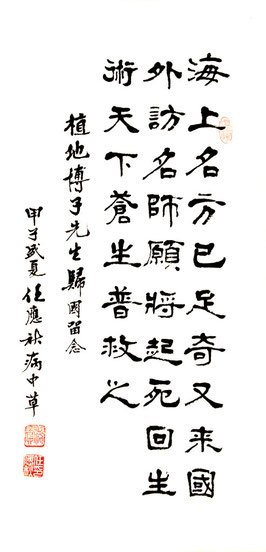 海上名方已足奇又来國
外訪名師願將起死回生
術天下蒼生普救之
植地博子先生歸國留念
甲子盛夏任應秋病中草